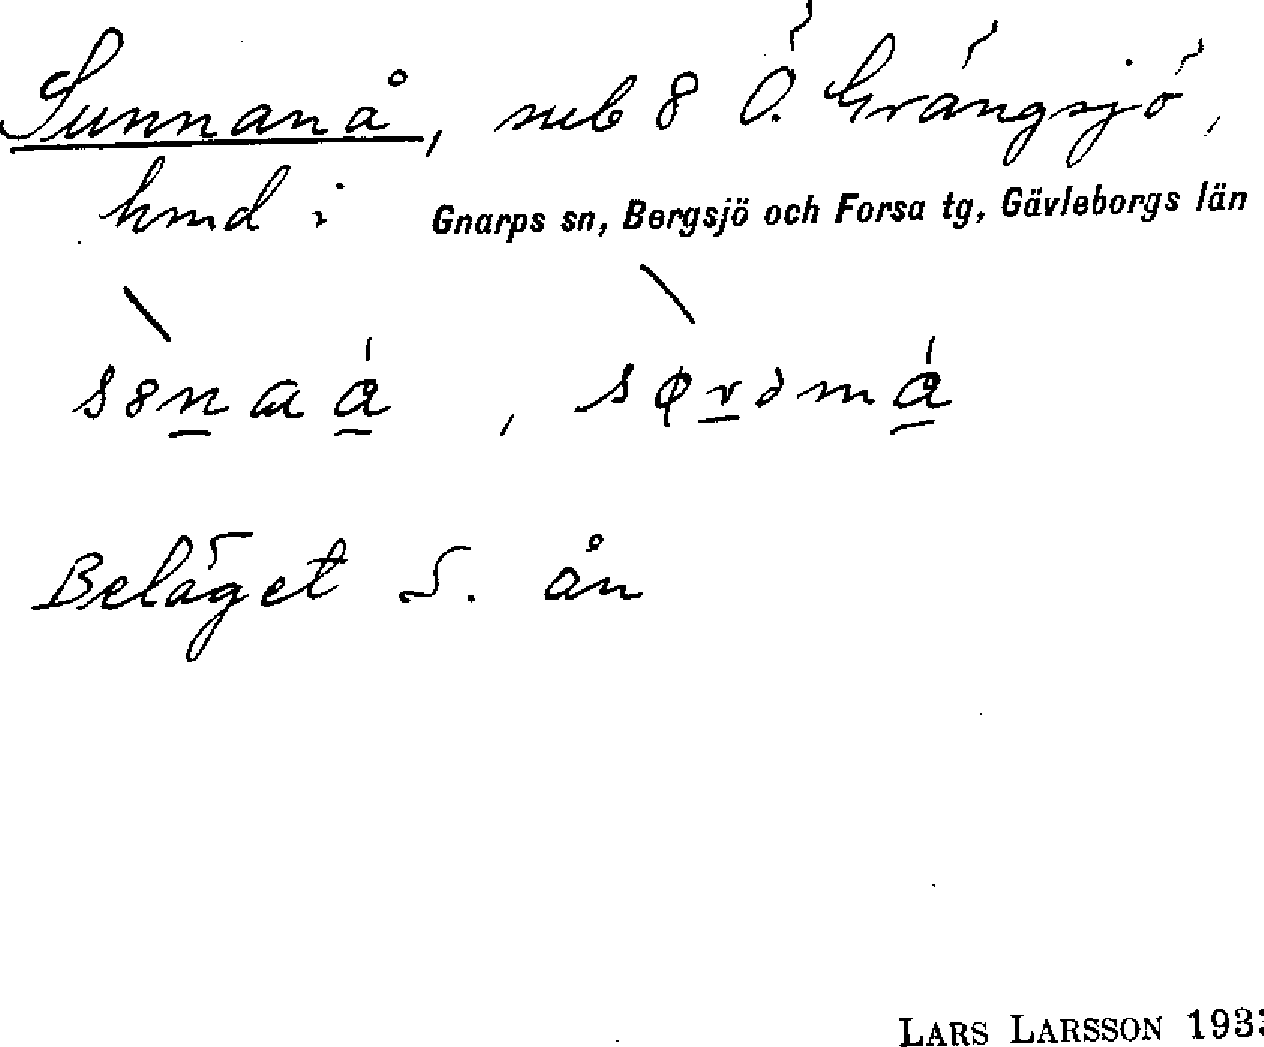 Sunnanå, meb 8 Ö. Grängsjö,
hmd i Gnarps sn, Bergsjö och Forsa tg, Gävleborgs län
Beläget S. ån
LARS LARSSON 193